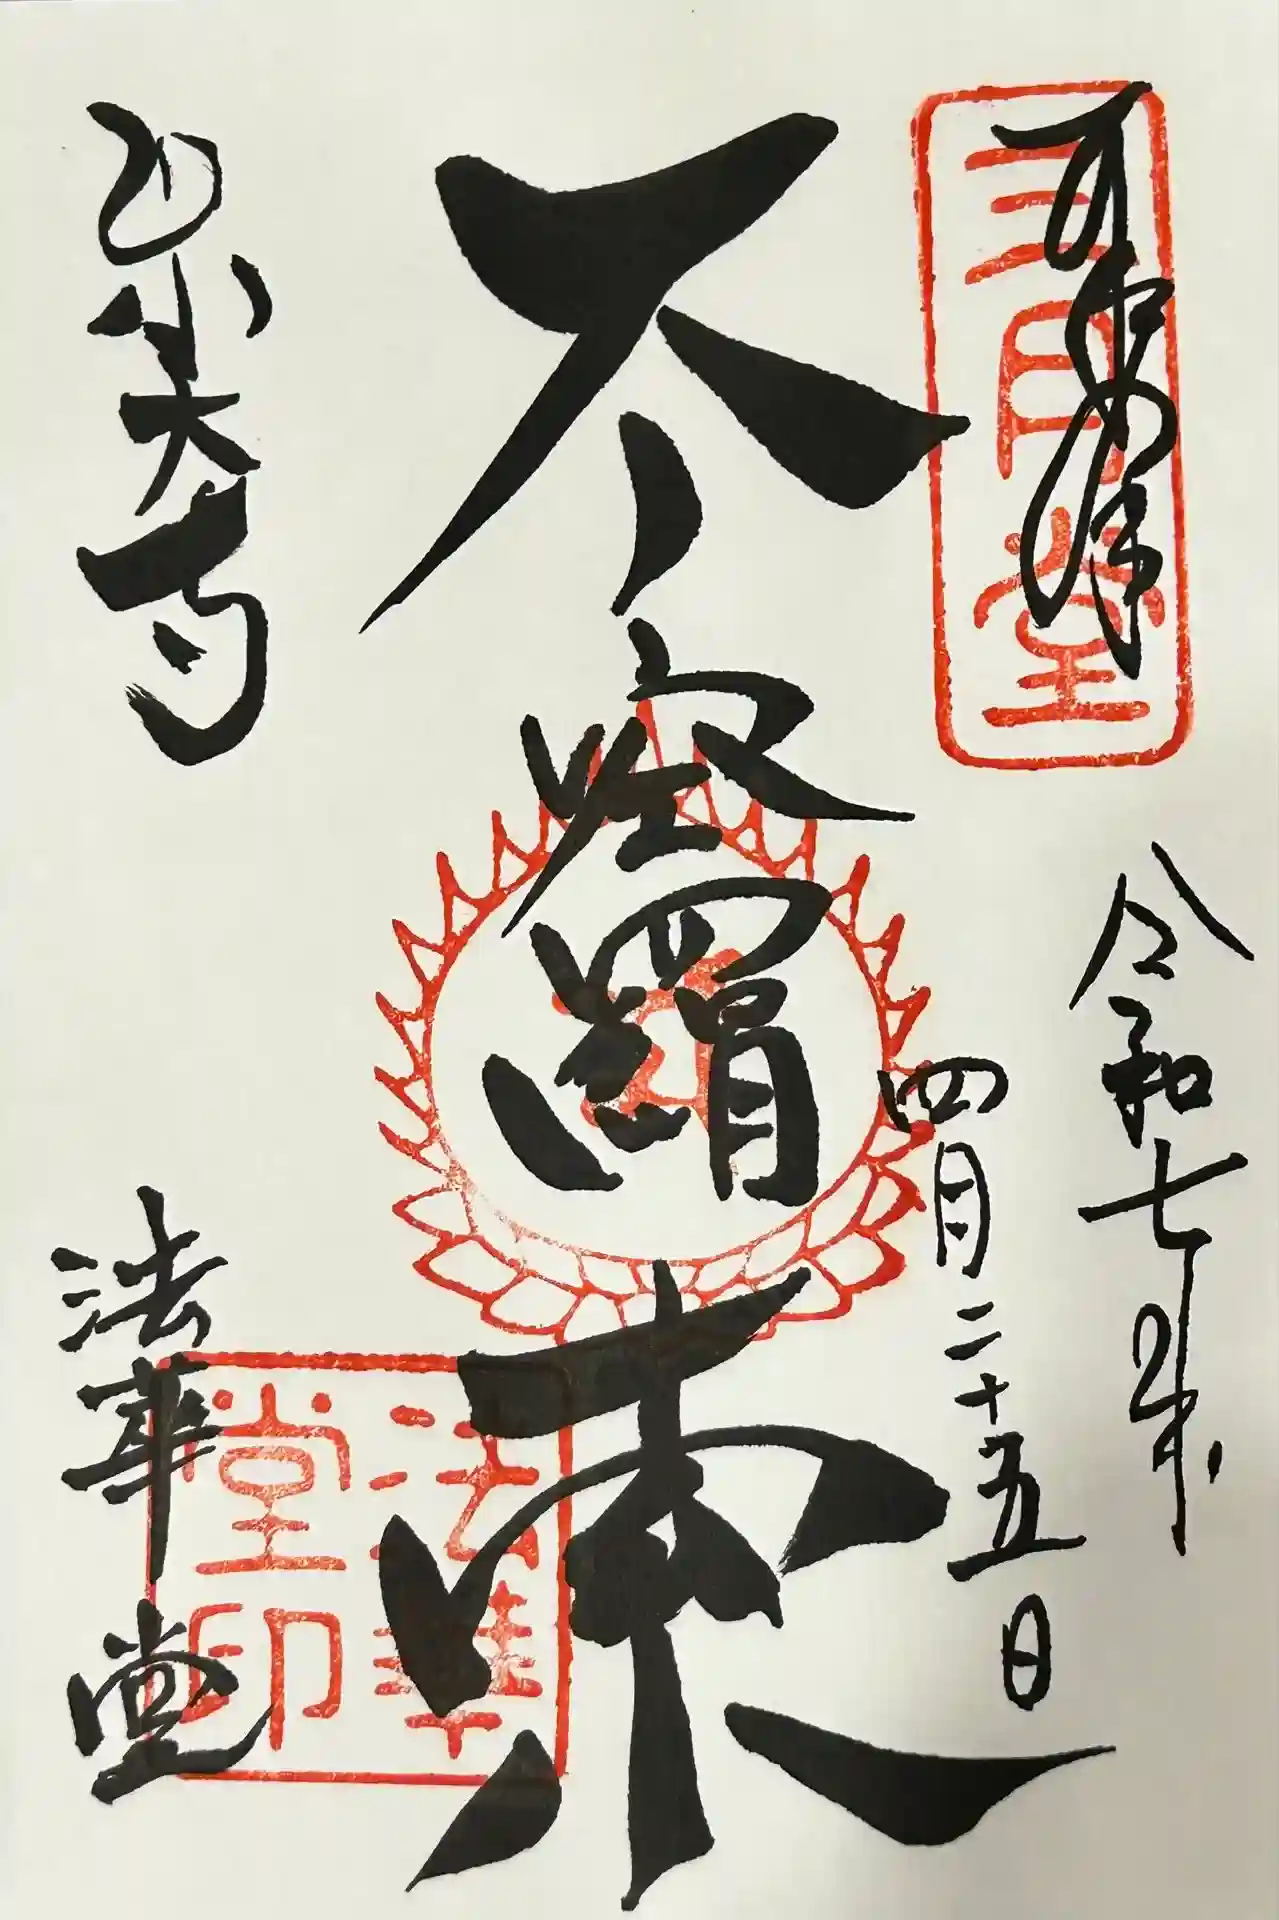 奉拝
三月堂
令和七年
四月二十五日
不空羂索
東大寺
法華堂
法華堂印